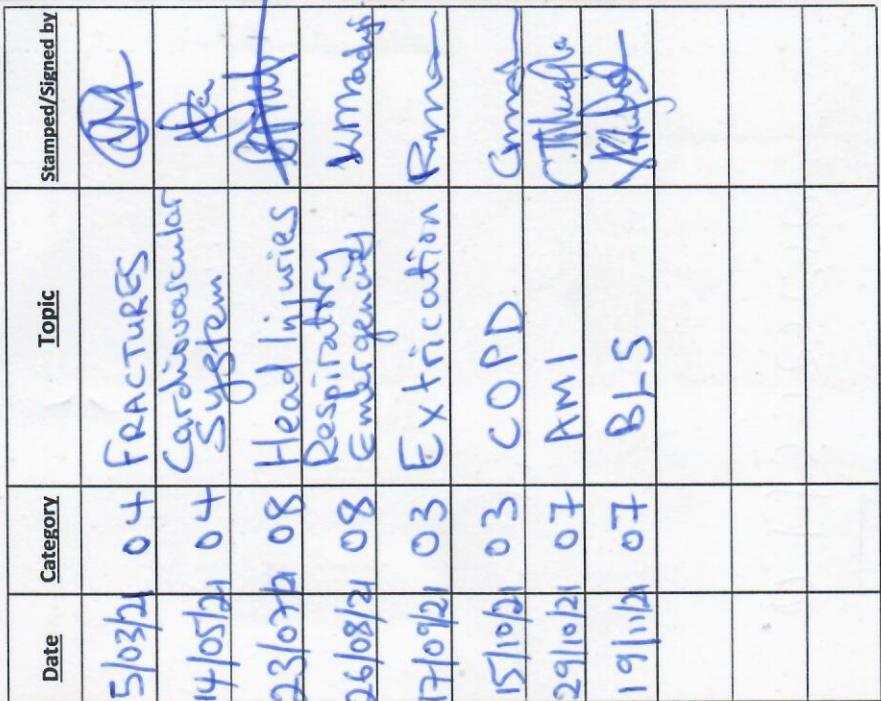 Date Category Topic Stamped/Signed by
5/03/21 04 FRACTURES
14/05/21 04 Cardiovascular
System
23/07/21 08 Head Injuries
26/08/21 08 Respiratory
Emergencies
17/09/21 03 Extrication
15/10/21 03 COPD
29/10/21 07 AMI
19/11/21 07 BLS